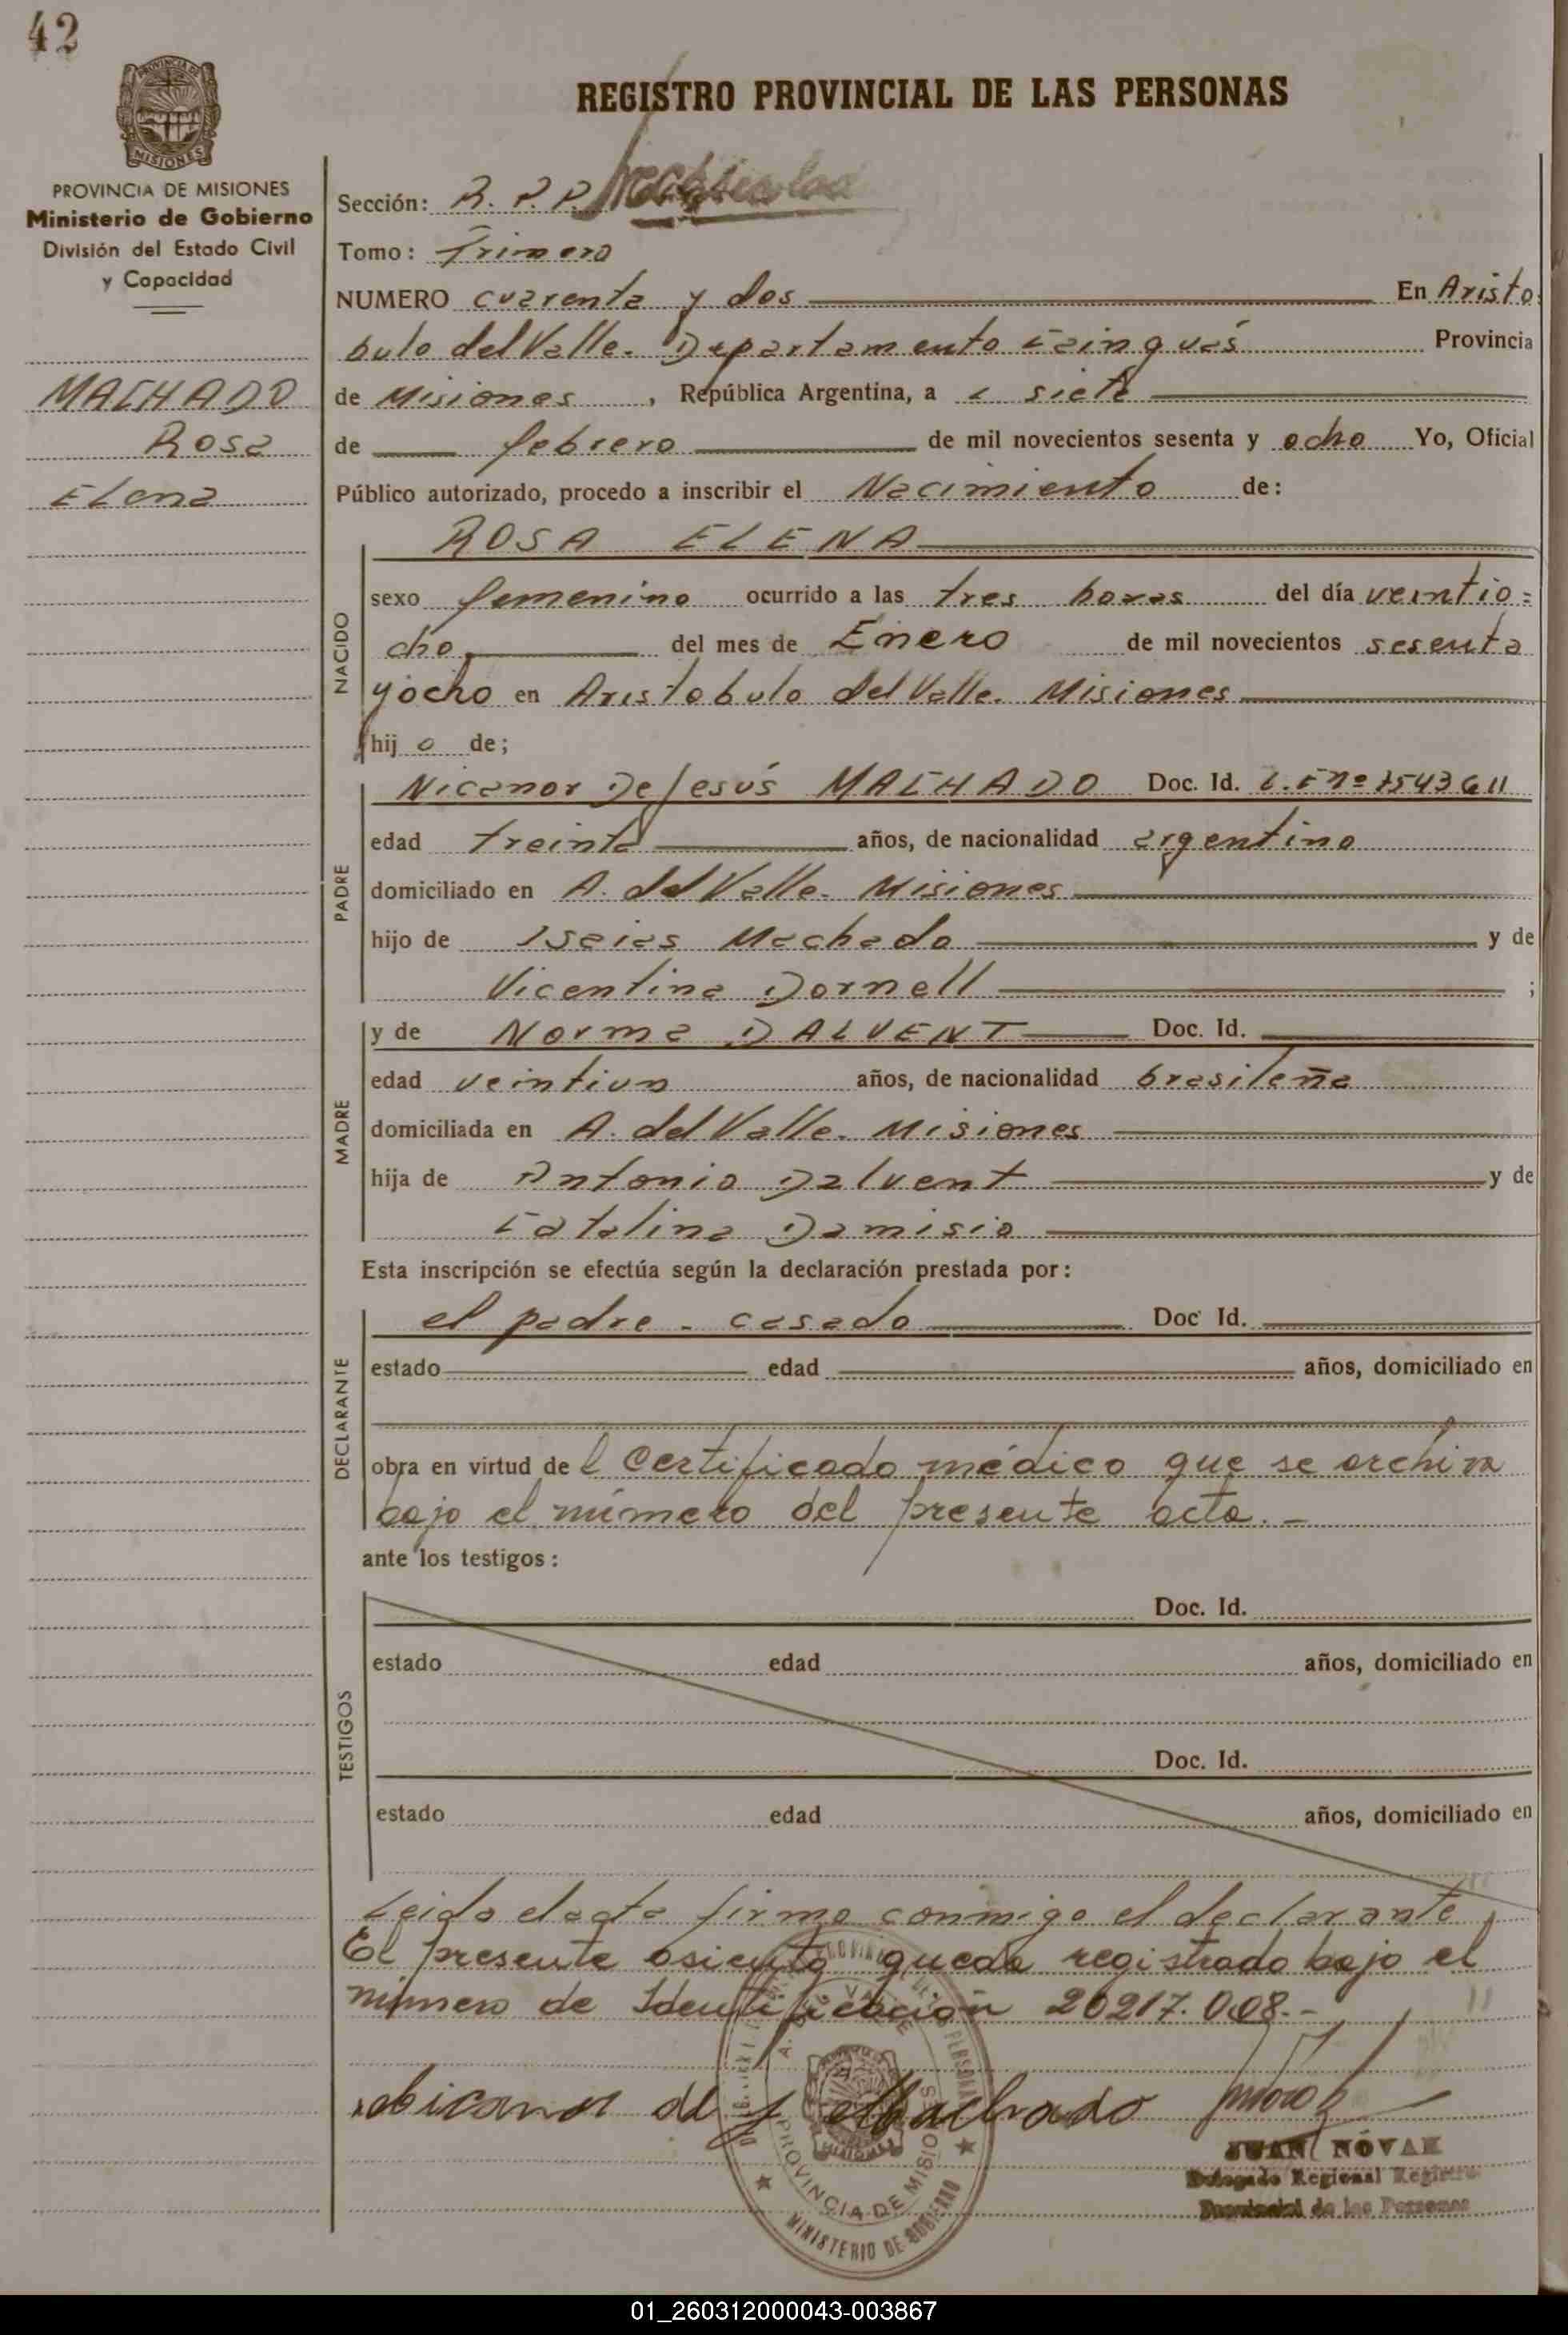 42
PROVINCIA DE MISIONES
Ministerio de Gobierno
División del Estado Civil
y Capacidad
MACHADO
Rosa
Elena
REGISTRO PROVINCIAL DE LAS PERSONAS
Sección: R. P. P.
Tomo: Primero
NUMERO cuarenta y dos En Aristo
bulo del Valle. Departamento Cainguás Provincia
de Misiones, República Argentina, a siete
de febrero de mil novecientos sesenta y ocho Yo, Oficial
Público autorizado, procedo a inscribir el Nacimiento de:
NACIDO
ROSA ELENA
sexo femenino ocurrido a las tres horas del día veintio=
cho del mes de Enero de mil novecientos sesenta
y ocho en Aristobulo del Valle. Misiones
hij o de;
PADRE
Nicanor De Jesús MACHADO Doc. Id. L.E nº 7543611
edad treinta años, de nacionalidad argentino
domiciliado en A. del Valle. Misiones
hijo de Isaias Machado y de
Vicentina Dornell ;
MADRE
y de Norma DALVENT Doc. Id.
edad veintiun años, de nacionalidad brasileña
domiciliada en A. del Valle. Misiones
hija de Antonio Dalvent y de
Catalina Damisio
Esta inscripción se efectúa según la declaración prestada por:
DECLARANTE
el padre - casado Doc Id.
estado edad años, domiciliado en
obra en virtud del Certificado médico que se archiva
bajo el número del presente acta. -
ante los testigos:
TESTIGOS
Doc. Id.
estado edad años, domiciliado en
Doc. Id.
estado edad años, domiciliado en
Leida el acta firma conmigo el declarante
El presente asiento queda registrado bajo el
número de Identificación 20217.008.-
Nicanor de J Machado
JUAN NÓVAK
Delegado Regional Registro
Provincial de las Personas
PROVINCIA DE MISIONES
MINISTERIO DE GOBIERNO
01_260312000043-003867